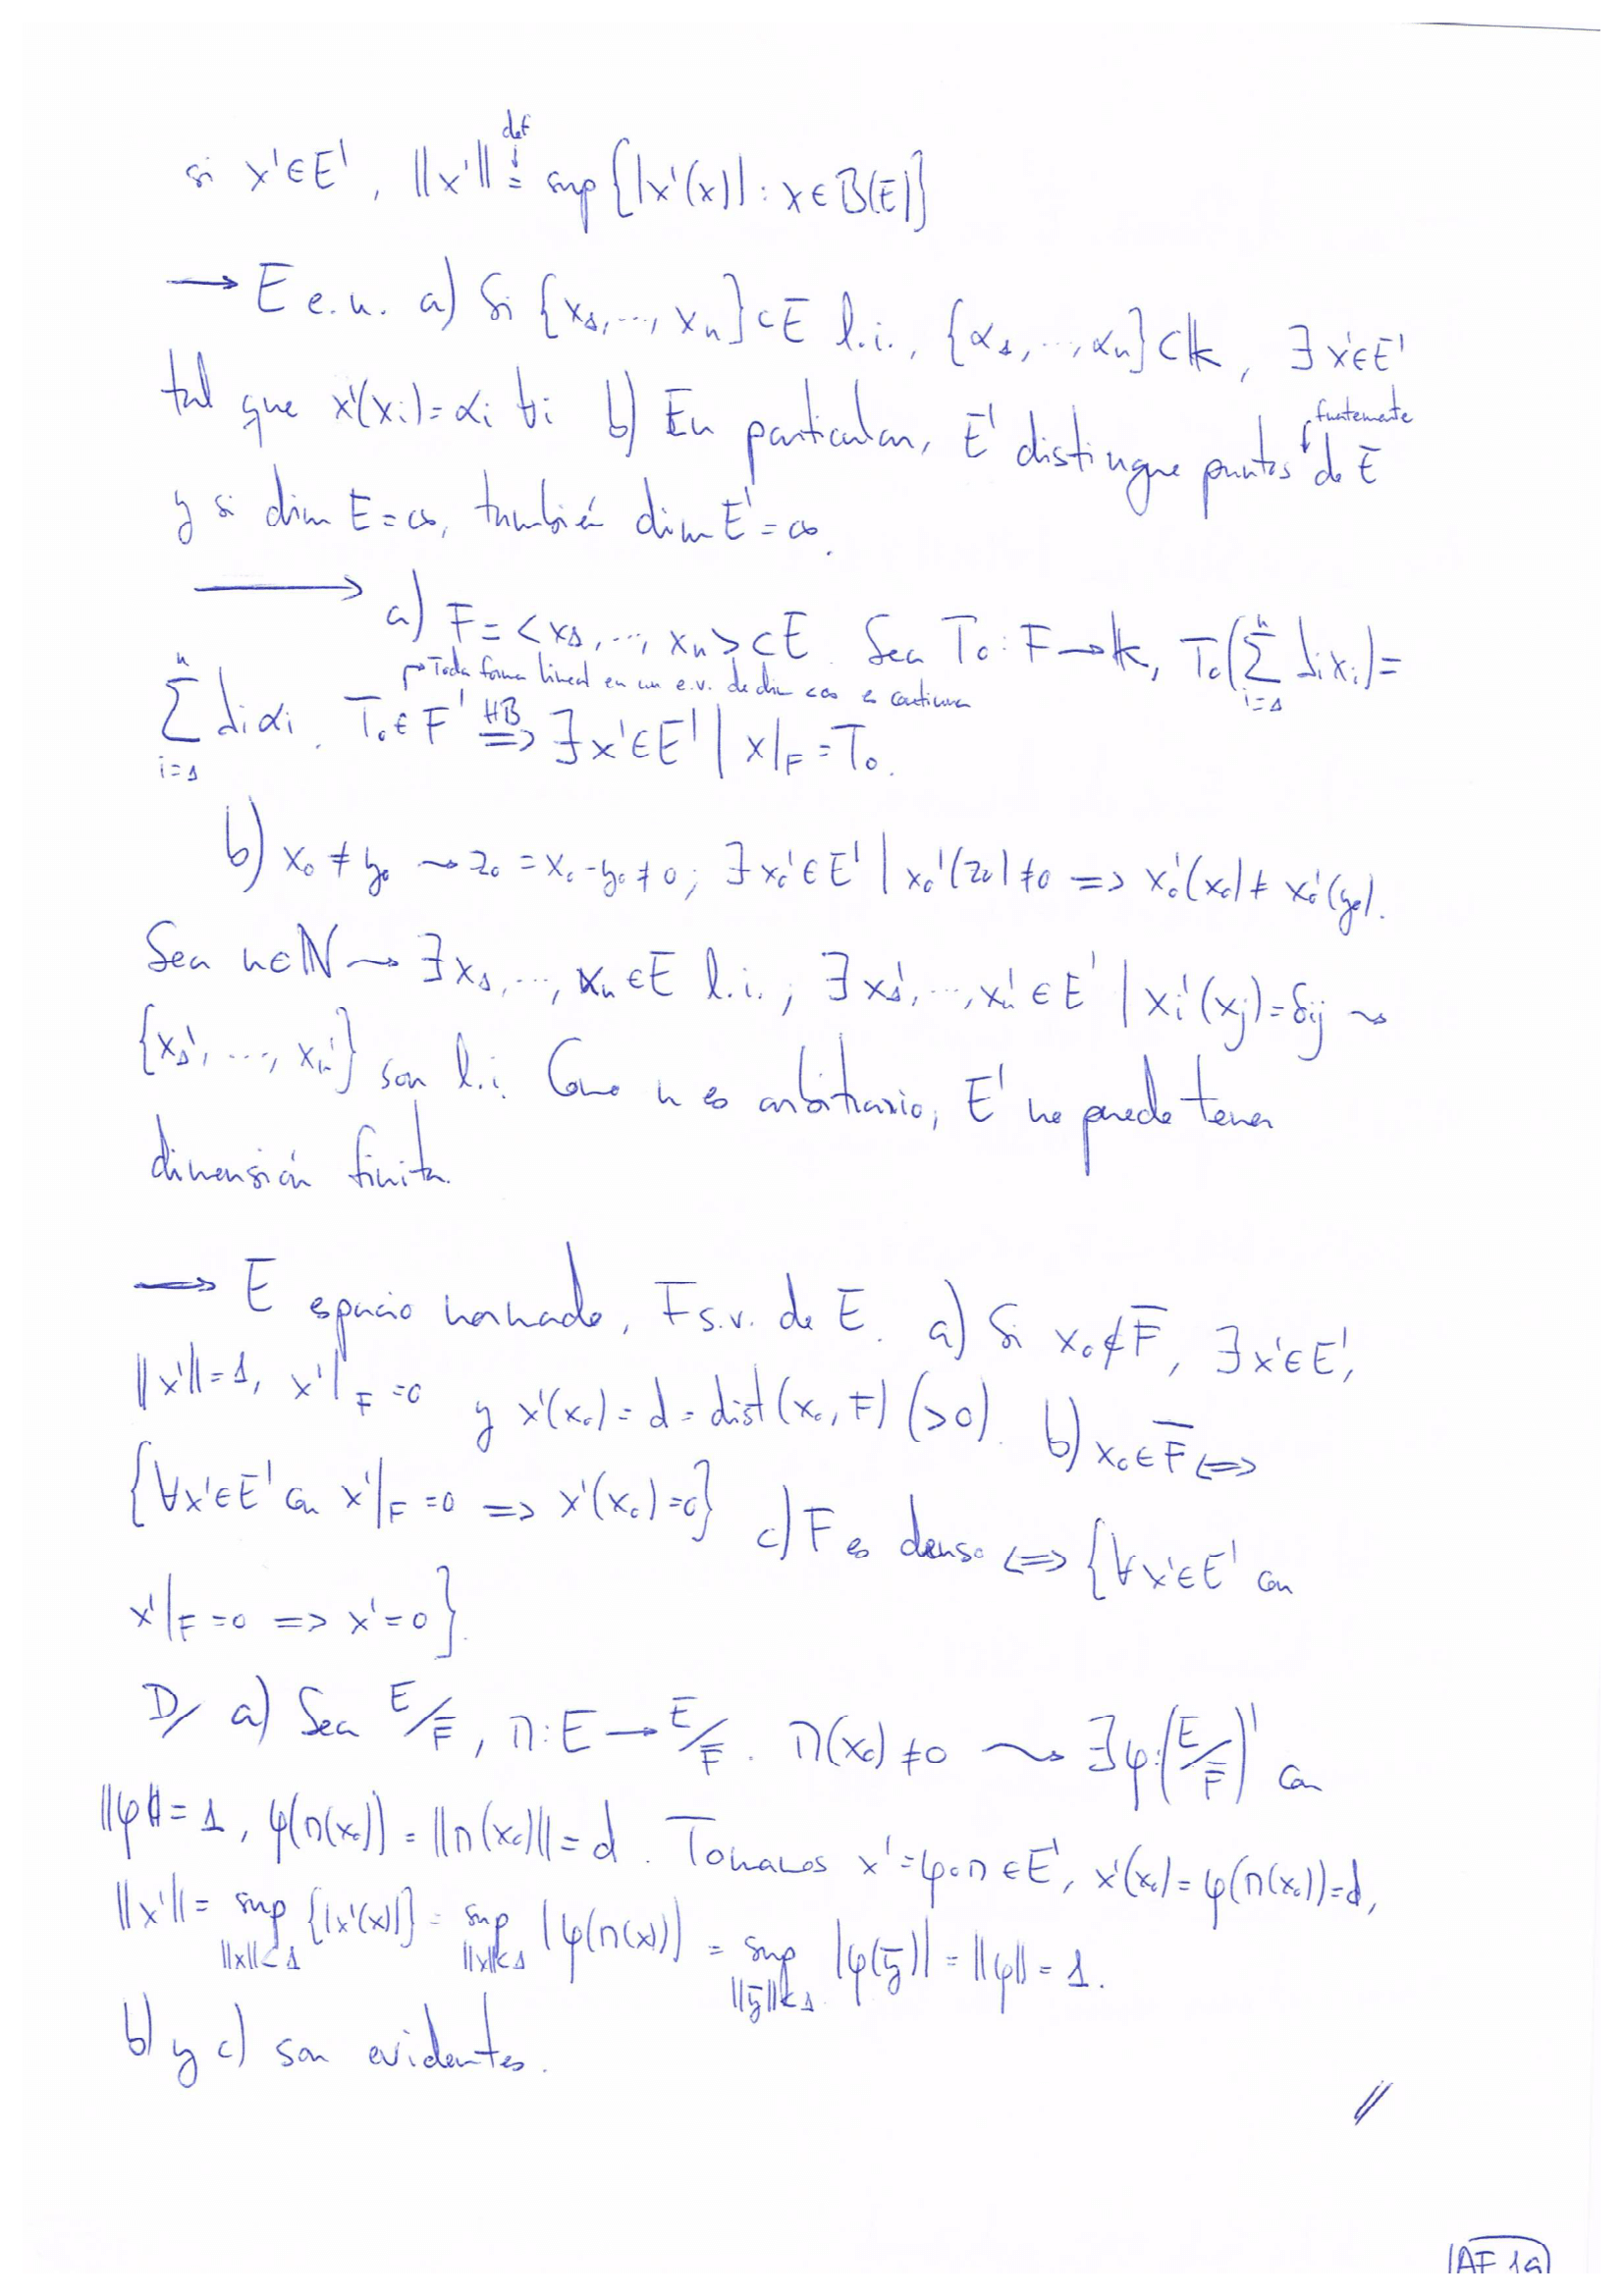 si x'∈E', ||x'|| = sup{|x'(x)| : x∈B(E)}
def ↓
→ E e.n. a) Si {x₁,…,xₙ}⊂E l.i., {α₁,…,αₙ}⊂𝕂, ∃x'∈E'
tal que x'(xᵢ)=αᵢ ∀i b) En particular, E' distingue puntos de E
↓ fuertemente
y si dim E=∞, también dim E'=∞.
⟶ a) F=<x₁,…,xₙ>⊂E. Sea T₀:F→𝕂, T₀(∑ᵢ₌₁ⁿ λᵢxᵢ)=
→ Toda forma lineal en un e.v. de dim <∞ es continua
∑ᵢ₌₁ⁿ λᵢαᵢ. T₀∈F' =HB=> ∃x'∈E' | x|_F=T₀.
b) x₀≠y₀ ⇝ z₀=x₀-y₀≠0; ∃x₀'∈E' | x₀'(z₀)≠0 => x₀'(x₀)≠x₀'(y₀).
Sea n∈ℕ ⇝ ∃x₁,…,xₙ∈E l.i.; ∃x₁',…,xₙ'∈E' | xᵢ'(xⱼ)=δᵢⱼ ⇝
{x₁',…,xₙ'} son l.i. Como n es arbitrario, E' no puede tener
dimensión finita.
→ E espacio normado, F s.v. de E. a) Si x₀∉F̅, ∃x'∈E',
||x'||=1, x'|_F=0 y x'(x₀)=d=dist(x₀,F) (>0). b) x₀∈F̅ <=>
{∀x'∈E' con x'|_F=0 => x'(x₀)=0} c) F es denso <=> {∀x'∈E' con
x'|_F=0 => x'=0}.
D/ a) Sea E/F̅, Π:E→E/F̅. Π(x₀)≠0 ⇝ ∃φ:(E/F̅)' con
||φ||=1, φ(Π(x₀))=||Π(x₀)||=d. Tomamos x'=φ∘Π∈E', x'(x₀)=φ(Π(x₀))=d,
||x'||= sup_{||x||<1} {|x'(x)|} = sup_{||x||<1} |φ(Π(x))| = sup_{||y̅||<1} |φ(y̅)| = ||φ||=1.
b) y c) son evidentes.
//
AF 19